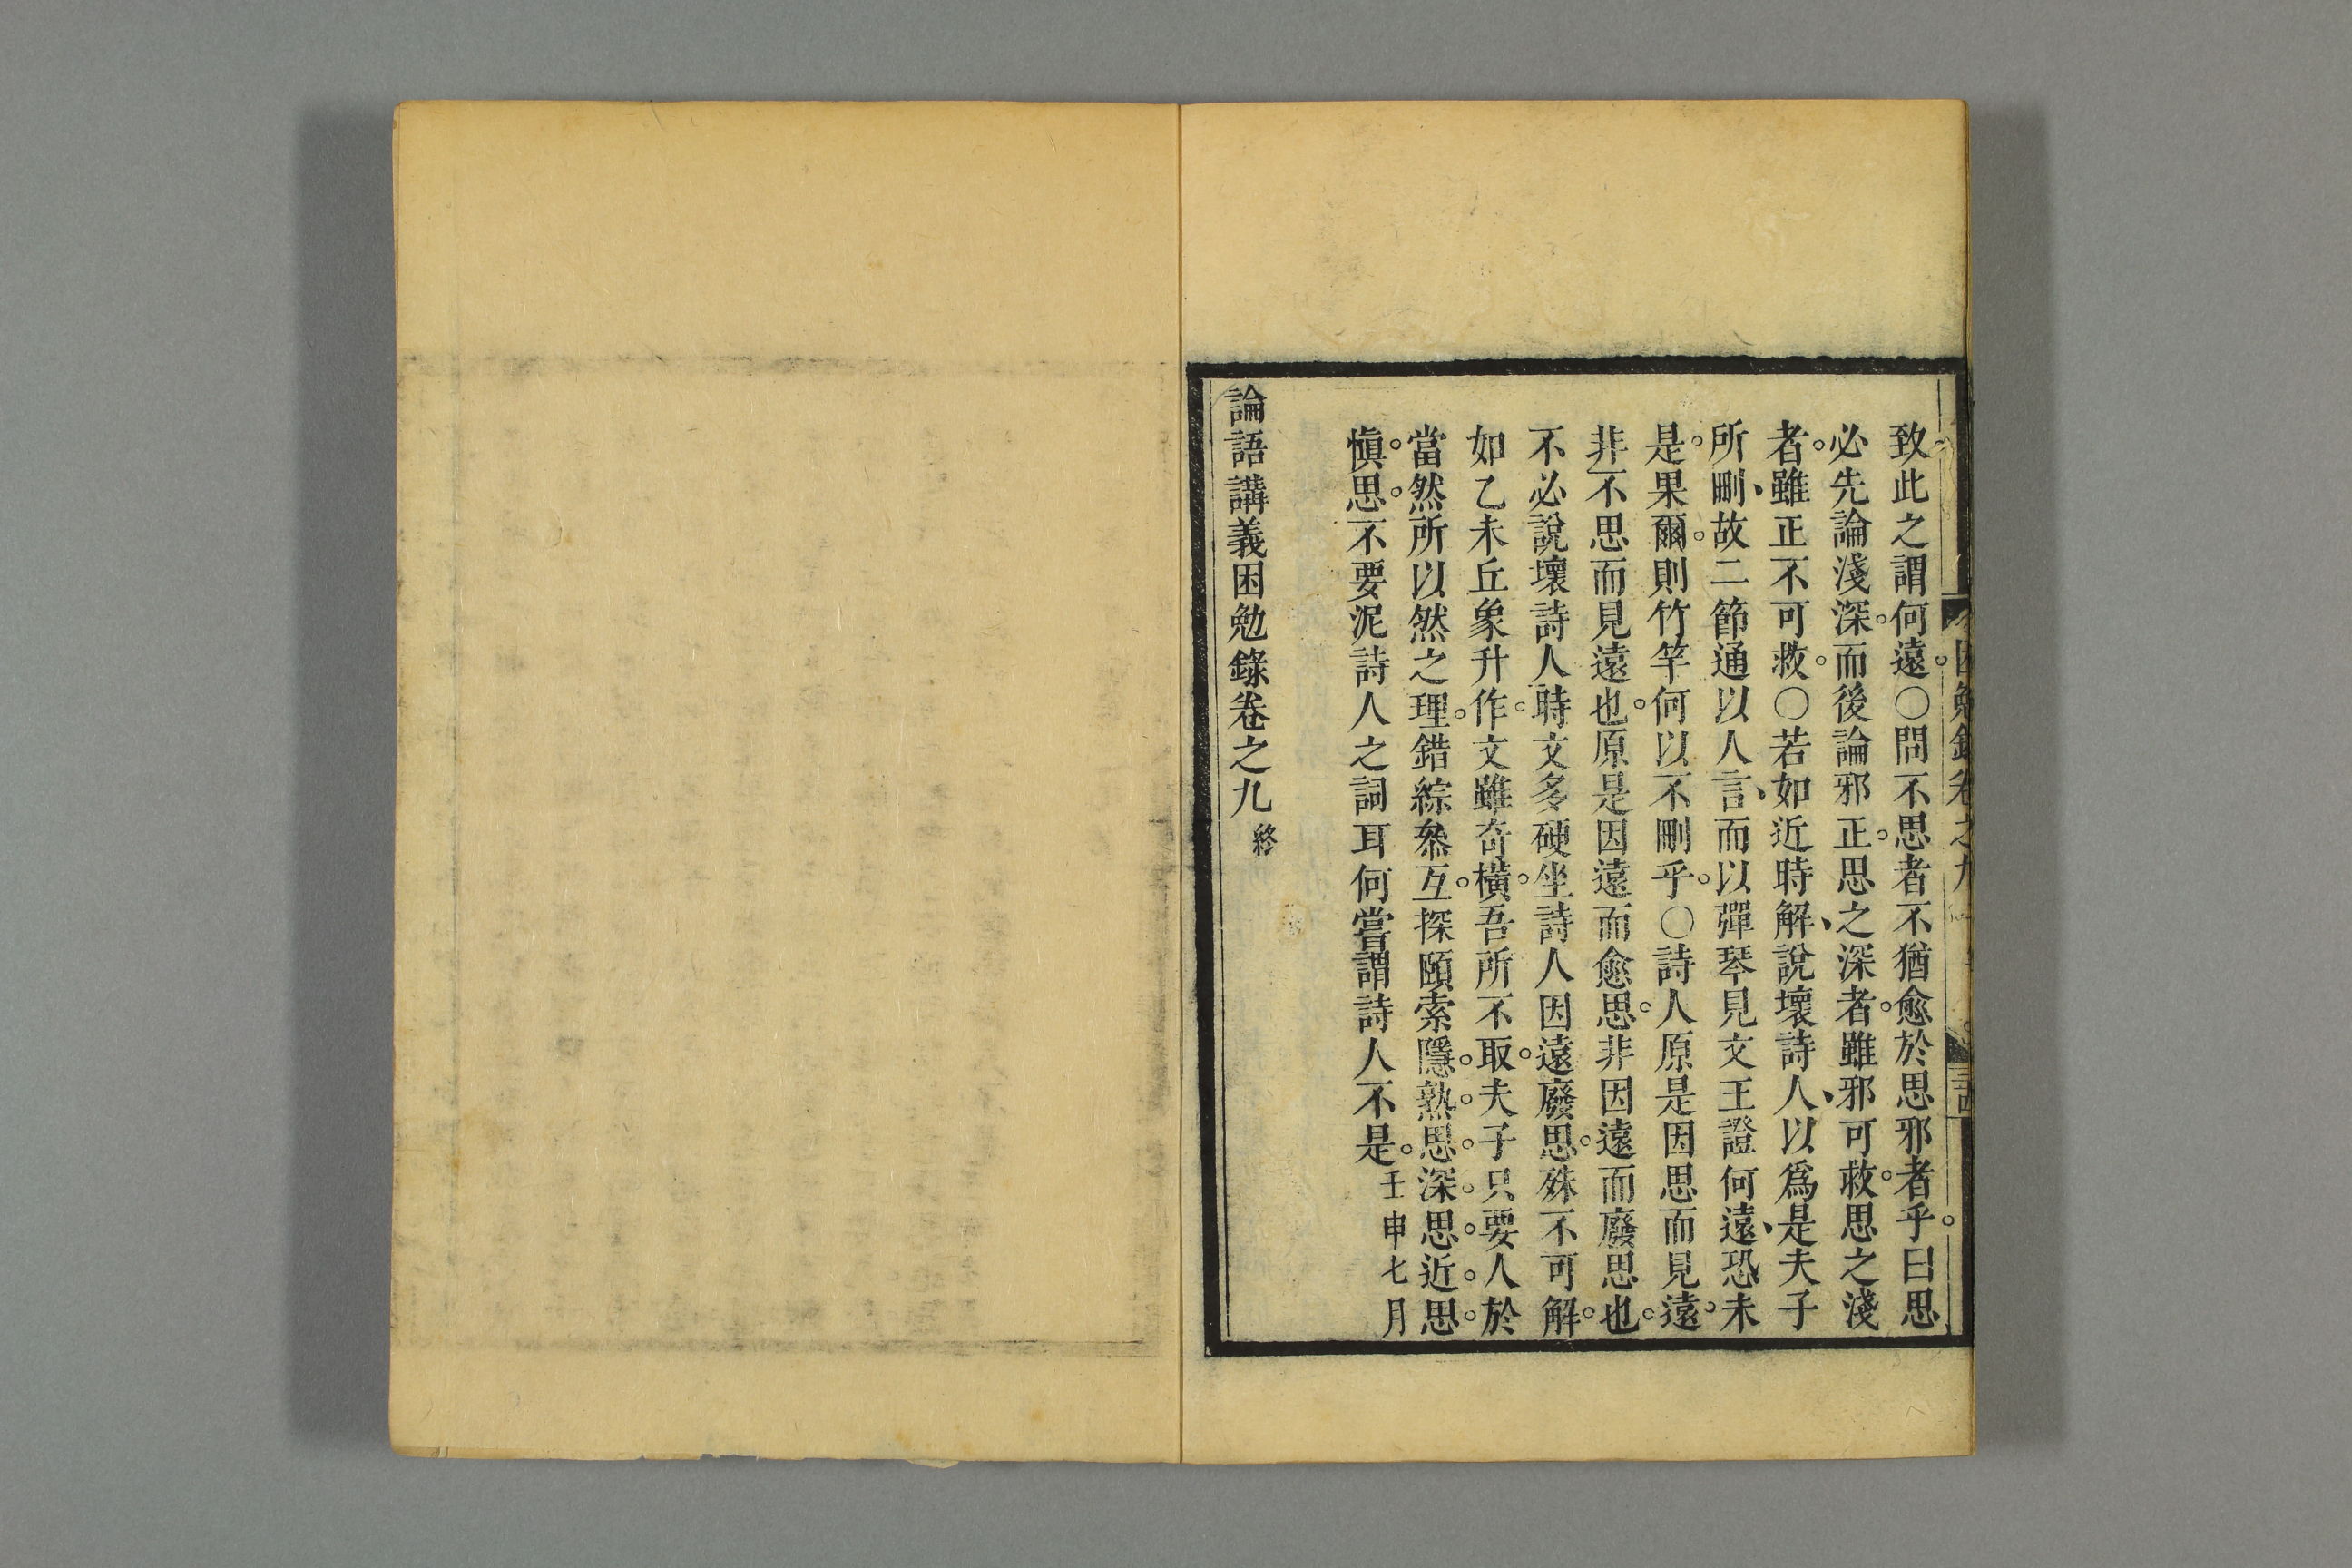 困勉錄卷之九
致此之謂何遠。○問不思者不猶愈於思邪者乎。曰思
必先論淺深。而後論邪正。思之深者。雖邪可救。思之淺
者。雖正不可救。○若如近時解、說壞詩人、以爲是夫子
所刪、故二節通以人言、而以彈琴見文王證何遠、恐未
是。果爾。則竹竿何以不刪乎。○詩人原是因思而見遠。
非不思而見遠也。原是因遠而愈思。非因遠而廢思也。
不必說壞詩人時文多硬坐詩人因遠廢思。殊不可解。
如乙未丘象升作。文雖奇橫。吾所不取。夫子只要人於
當然所以然之理。錯綜叅互。探頤索隱。熟。思。深。思。近。思。
愼。思。不要泥詩人之詞耳何嘗謂詩人不是。壬申七月
論語講義困勉錄卷之九 終